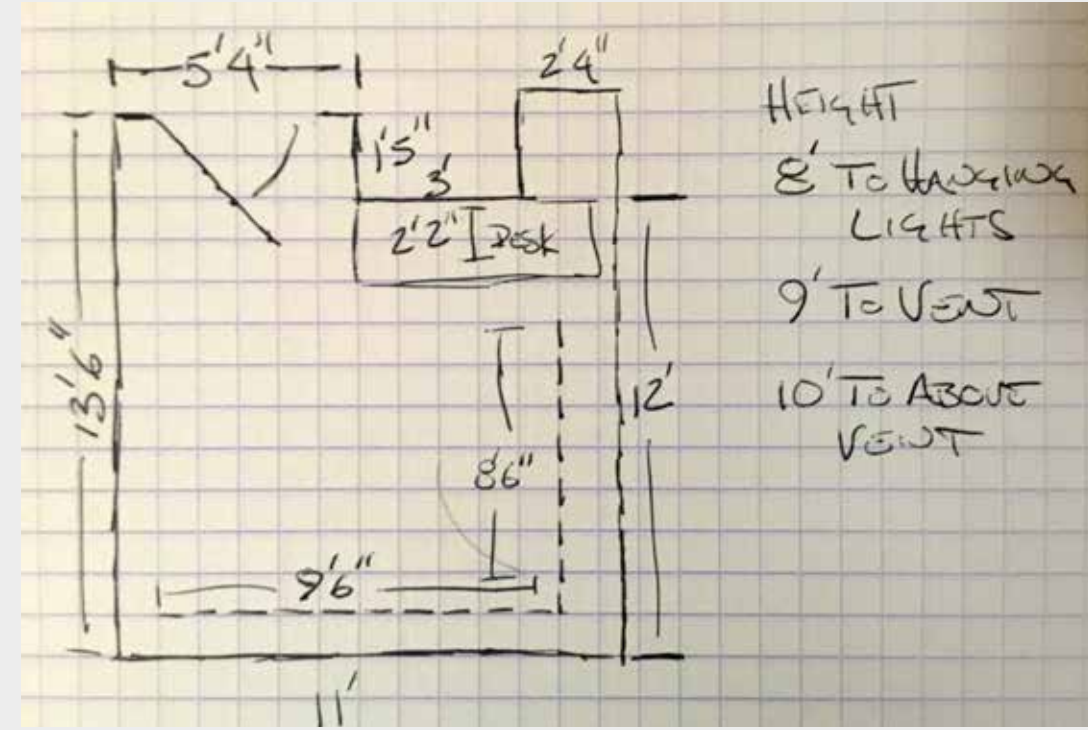 5'4"
2'4"
1'5"
3'
2'2" DESK
13'6"
12'
8'6"
9'6"
11'
HEIGHT
8' TO HANGING
LIGHTS
9' TO VENT
10' TO ABOVE
VENT